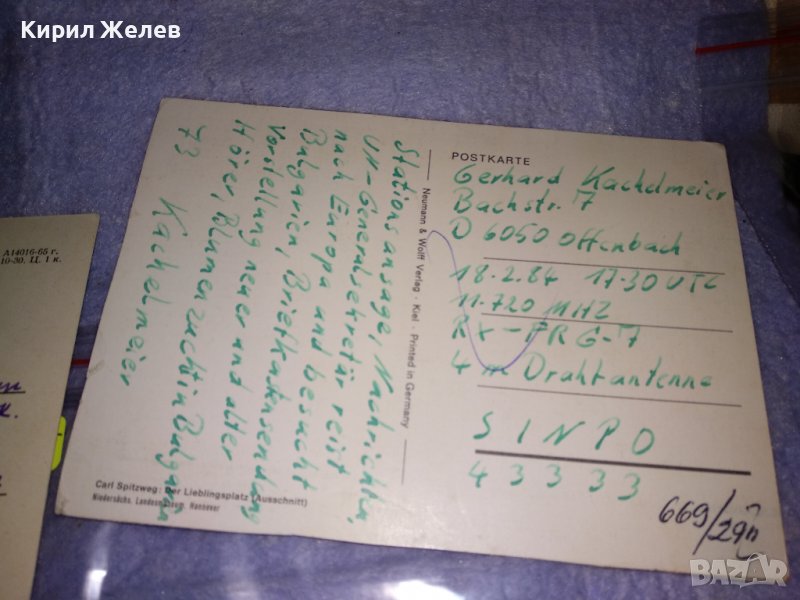 Кирил Желев
POSTKARTE
Gerhard Kachelmeier
Bachstr. 7
D 6050 Offenbach
18.2.84 17.30 UTC
11.720 MHZ
RX-FRG-7
4 m Drahtantenne
SINPO
43333
669/29
Stationsansage, Nachrichten,
UN-Generalsekretär reist
nach Europa und besucht
Bulgarien, Briefkastensendung
Vorstellung neuer und alter
Hörer, Blumenzucht in Bulgarien
73 Kachelmeier
Neumann & Wolff Verlag · Kiel · Printed in Germany
Carl Spitzweg: Der Lieblingsplatz (Ausschnitt)
Niedersächs. Landesmuseum, Hannover
А14016-65 г.
10-30. Ц. 1 к.
BAZAR